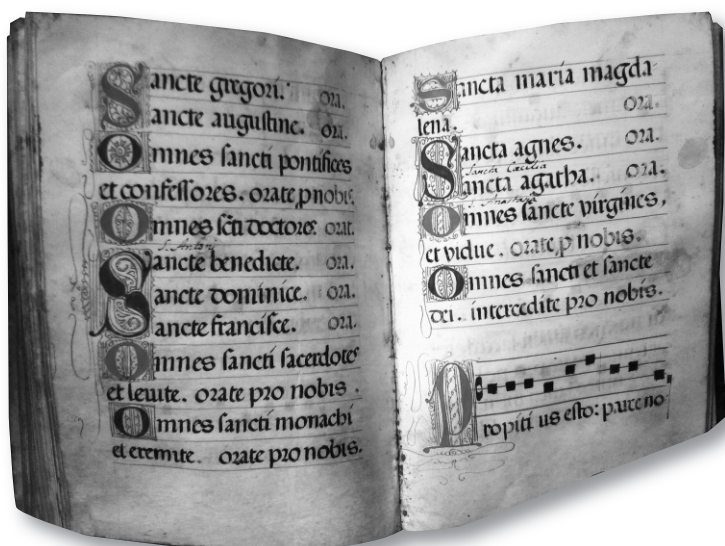 Sancte gregori. ora.
Sancte augustine. ora.
Omnes sancti pontifices
et confessores. orate p nobis.
Omnes scti doctores orat.
S. Antoni
Sancte benedicte. ora.
Sancte dominice. ora.
Sancte francisce. ora.
Omnes sancti sacerdotes
et levite. orate pro nobis.
Omnes sancti monachi
et eremite. orate pro nobis.
Sancta maria magda
lena. ora.
Sancta agnes. ora.
Sancta Cæcilia
Sancta agatha. ora.
S. Anastasia
Omnes sancte virgines,
et vidue. orate p nobis.
Omnes sancti et sancte
dei. intercedite pro nobis.
Propiti us esto: parce no